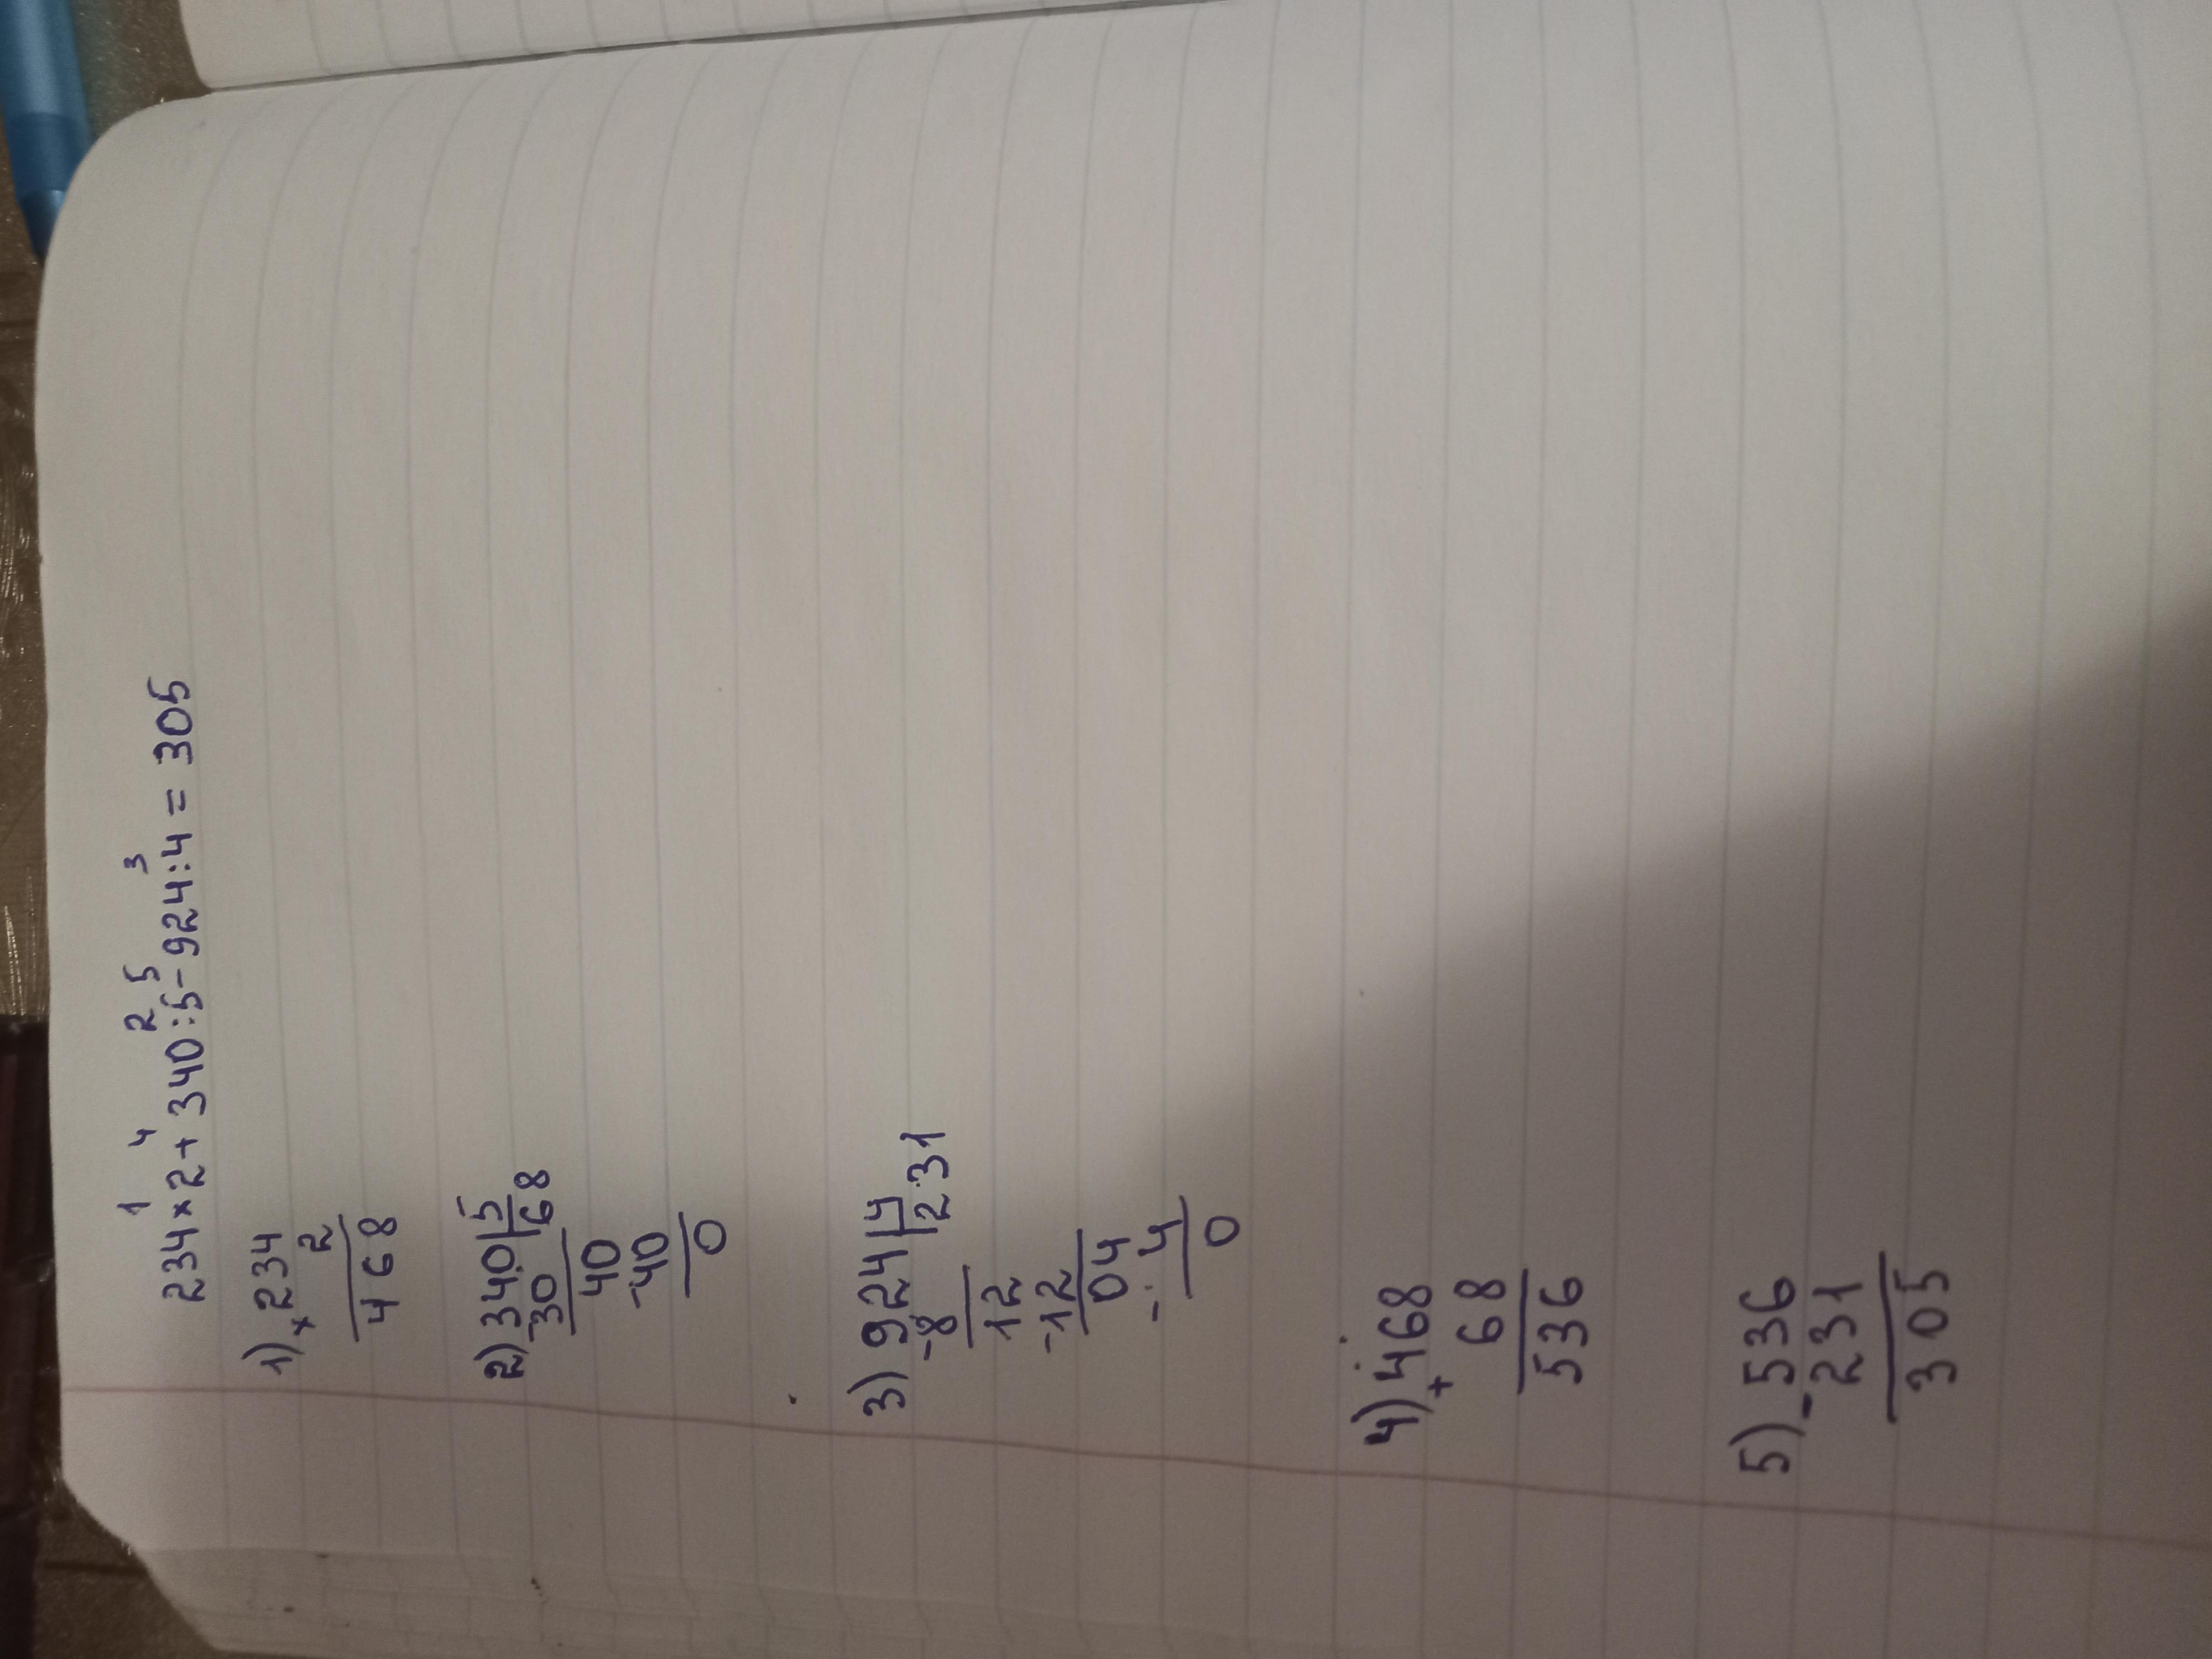 1 4 2 5 3
234×2+340:5-924:4=305
1) ×234
2
468
2) 340|5
-30 |68
40
-40
0
3) 924|4
-8 |231
12
-12
04
-4
0
4) +468
68
536
5) -536
231
305